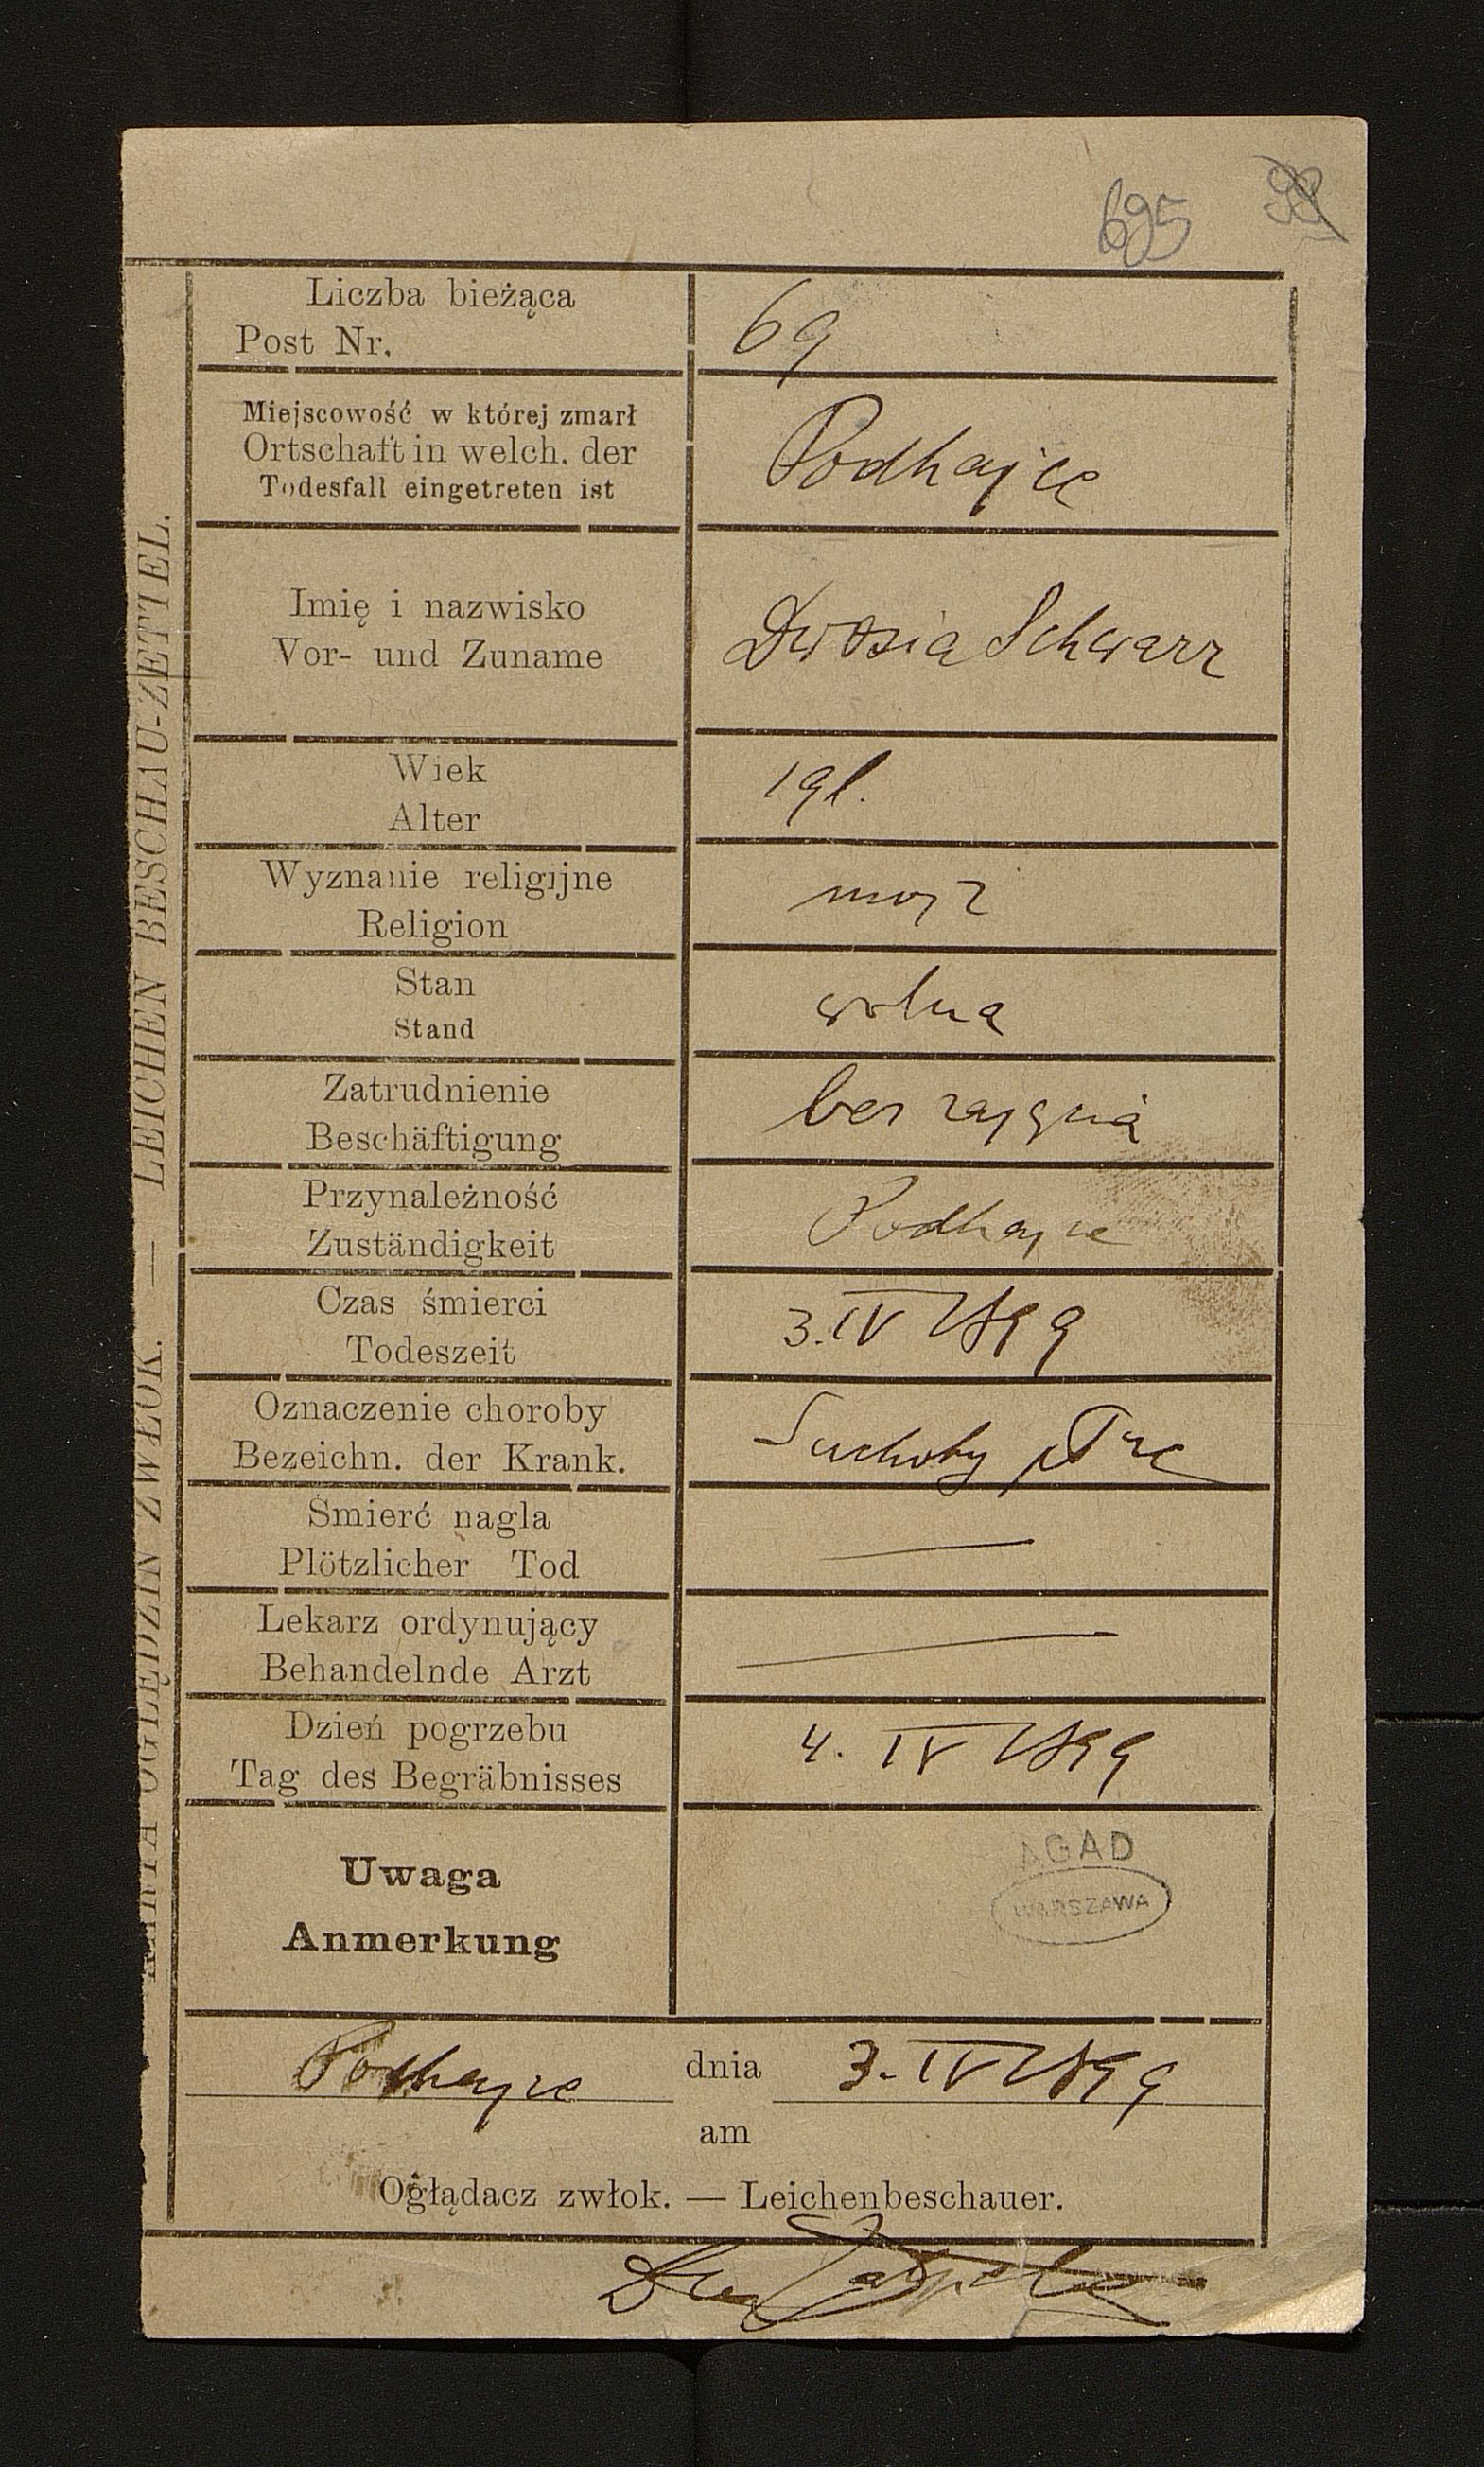 695 99
KARTA OGLĘDZIN ZWŁOK. — LEICHEN BESCHAU-ZETTEL.
Liczba bieżąca
Post Nr.
69
Miejscowość w której zmarł
Ortschaft in welch. der
Todesfall eingetreten ist
Podhajce
Imię i nazwisko
Vor- und Zuname
Dwosia Schwarz
Wiek
Alter
19 l.
Wyznanie religijne
Religion
mojż
Stan
Stand
wolna
Zatrudnienie
Beschäftigung
bez zajęcia
Przynależność
Zuständigkeit
Podhajce
Czas śmierci
Todeszeit
3. IV 1899
Oznaczenie choroby
Bezeichn. der Krank.
Suchoty płuc
Śmierć nagla
Plötzlicher Tod
Lekarz ordynujący
Behandelnde Arzt
Dzień pogrzebu
Tag des Begräbnisses
4. IV 1899
Uwaga
Anmerkung
AGAD
WARSZAWA
Podhajce dnia 3. IV 1899
am
Oglądacz zwłok. — Leichenbeschauer.